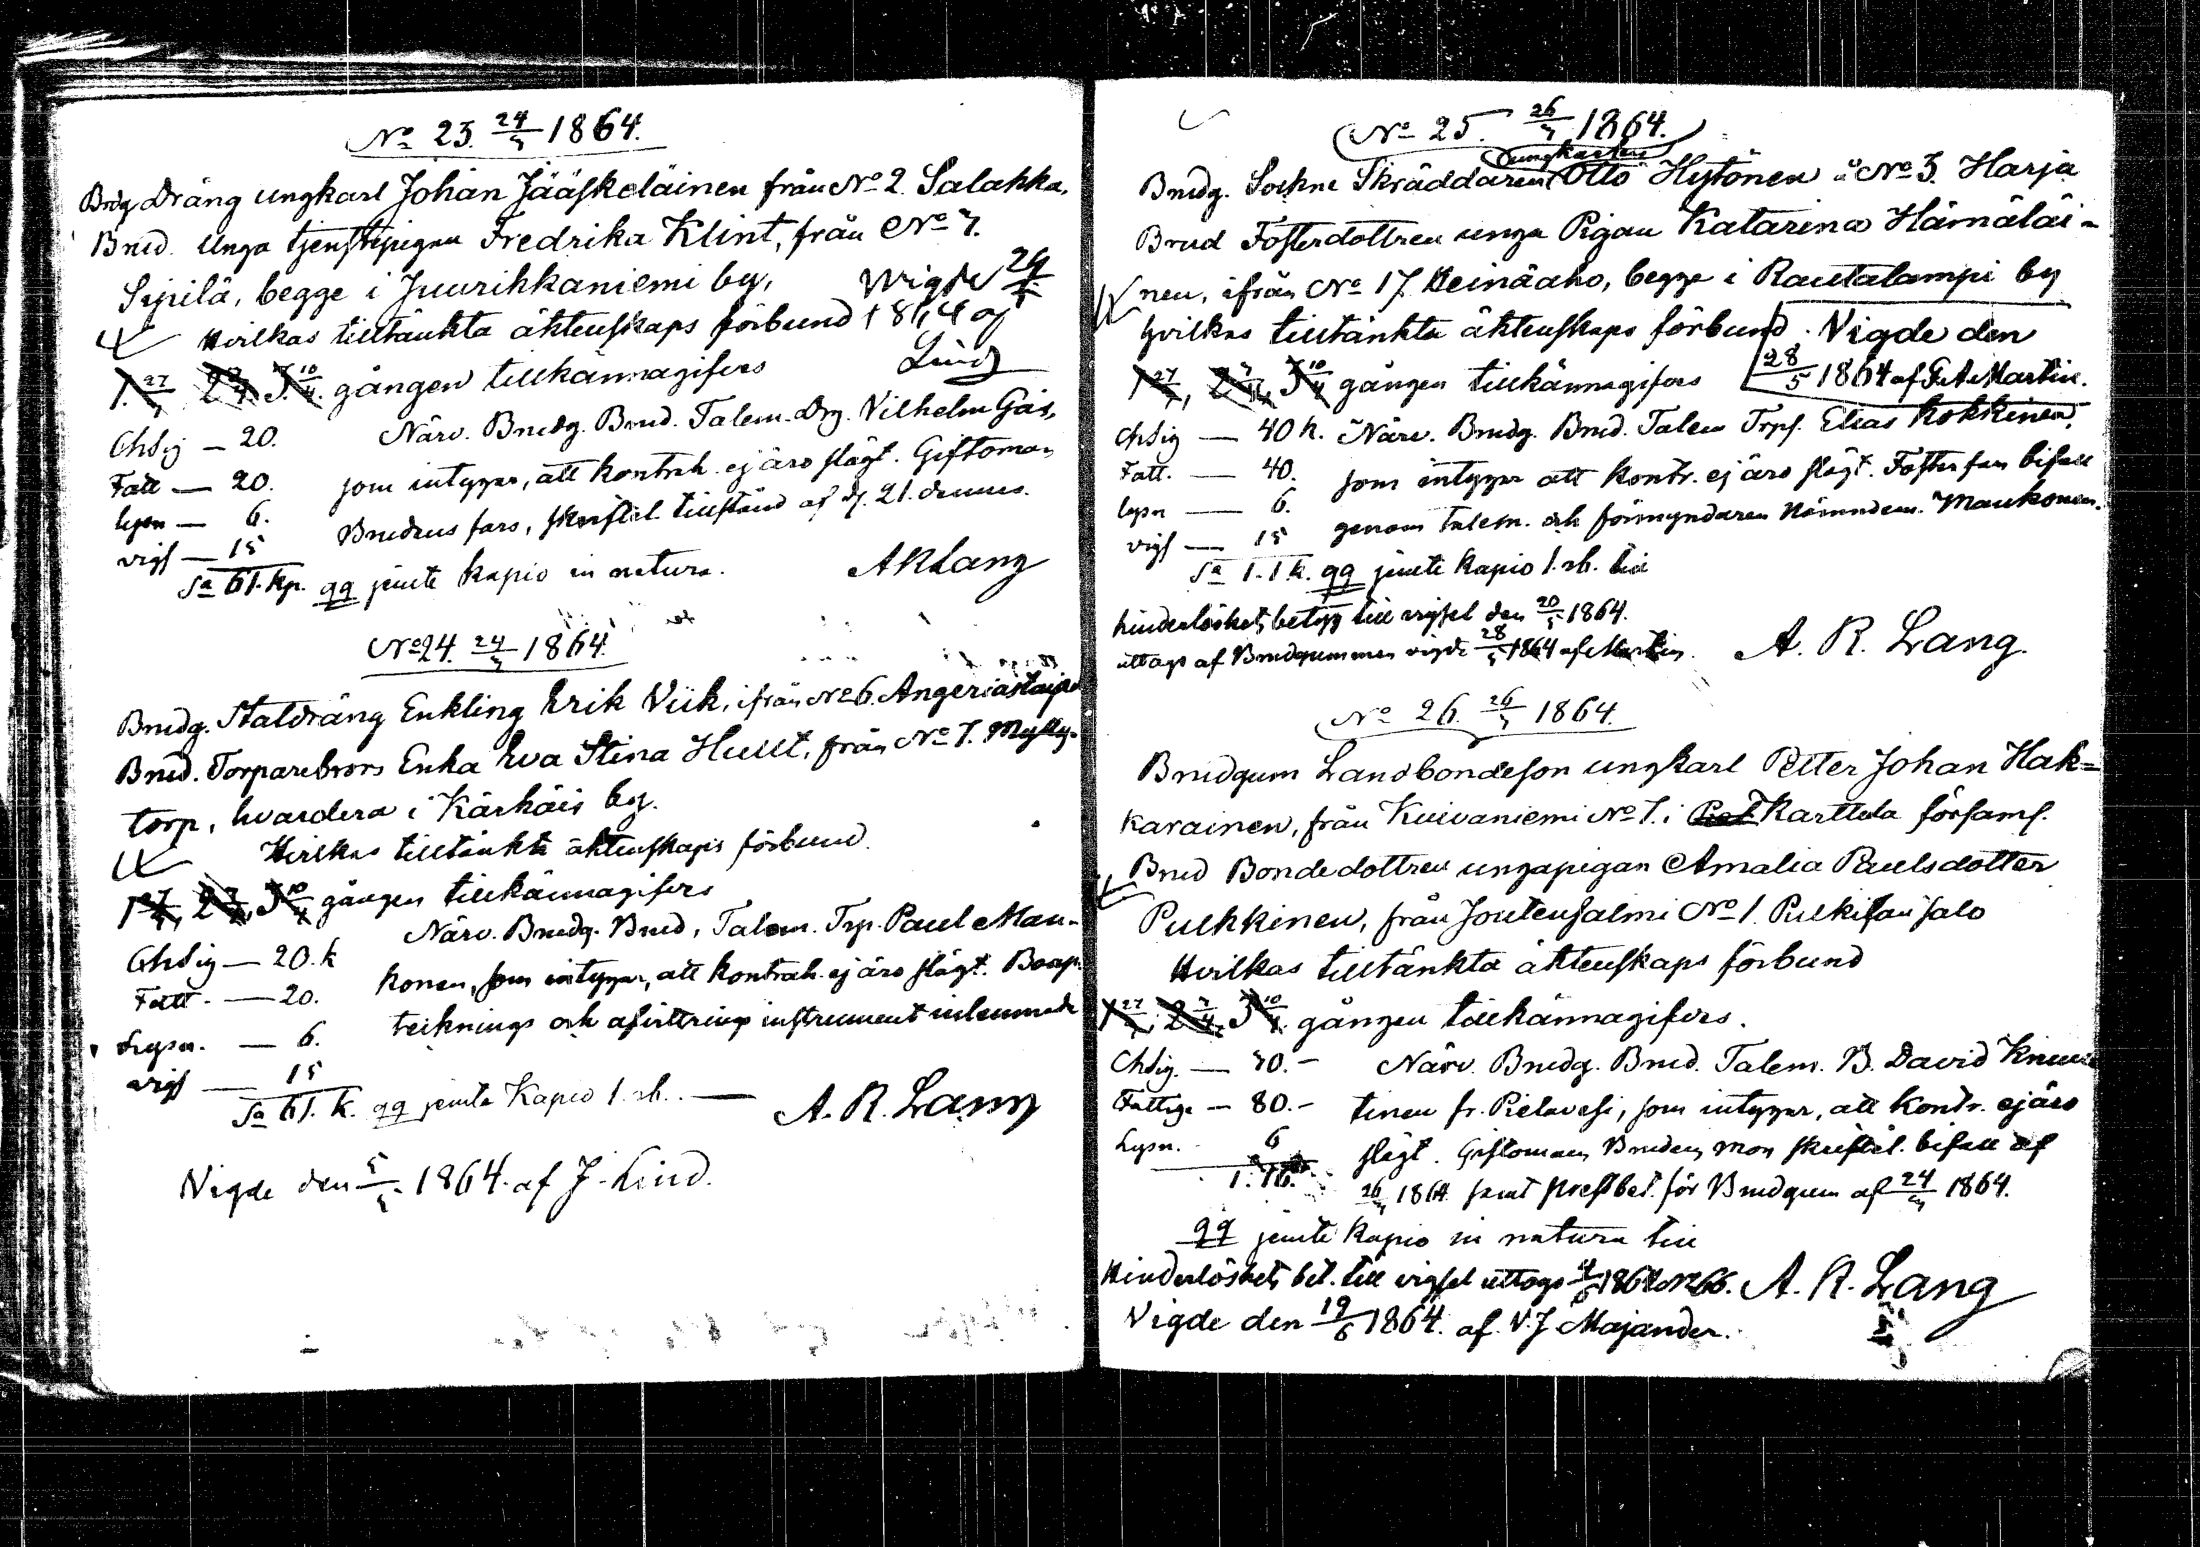 No 23. 24/3 1864.
Brdg Dräng ungkarl Johan Jääskeläinen från No 2 Salakka,
Brud. Unga tjenstepigan Fredrika Klint, från No 7.
Sipilä, begge i Juurikkaniemi by,
Hvilkas tilltänkta äktenskaps förbund
Wigde 29/5 1864 af
Lind
1. 27/3 2 3/4. 3. 10/4. gången tillkännagifves
Närv. Brudg. Brud. Talem. Drg. Vilhelm Gås,
som intygar, att kontrah. ej äro slägt. Giftoman
Brudens fars, skriftel. tillstånd af d. 21. dennes.
Chsig — 20.
Fatt — 20.
lysn — 6.
vigs — 15
Sa 61. kp. qq jemte kapio in natura.
A R Lang
No 24. 24/3 1864.
Brudg. Staldräng Enkling Erik Viik, ifrån No 6. Angeriastaipal
Brud. Torparebrors Enka Eva Stina Hullt, från No 7. Mylly-
torp, hvardera i Kärkäis by.
Hvilkas tilltänkta äktenskaps förbund.
1 27/3, 2 3/4, 3 10/4 gången tillkännagifves
Närv. Brudg. Brud, Talem. Trp. Paul Man-
konen, som intygar, att kontrah. ej äro slägt. Boup-
tecknings och afvittrings instrument inlemnade
Chsig — 20. k
Fatt. — 20.
Lysn. — 6.
vigs — 15
Sa 61. k. qq jemte Kapio 1. rb. —
A. R. Lang
Vigde den 5/5 1864. af J. Lind.
No 25. 26/3 1864.
ungkarlen
Brudg. Sockne Skräddaren Otto Hytönen å No 3. Harja
Brud Fosterdottren unga Pigan Katarina Hämäläi-
nen, ifrån No 17 Heinäaho, begge i Rautalampi by
hvilkas tilltänkta äktenskaps förbund. Vigde den
28/5 1864 af F. A. Martin.
1 27/3, 2 3/4, 3 10/4 gången tillkännagifves
Chsig — 40 k. Närv. Brudg. Brud. Talem Trps. Elias Kokkinen,
Fatt. — 40. som intygar att kontr. ej äro slägt. Fosterfars bifall
lysn — 6. genom talem. och förmyndaren Nämndem. Mankonen.
vigs — 15
Sa 1. 1 k. qq jemte Kapio 1. rb. till
hinderlöshets betyg till vigsel den 20/5 1864.
uttogs af Brudgummen vigde 28/5 1864 af Martin.
A. R. Lang.
No 26. 26/3 1864.
Brudgum Landbondeson ungkarl Petter Johan Hak-
karainen, från Kuivaniemi No 7. i Karttula församl.
Brud Bondedottren ungapigan Amalia Paulsdotter
Pulkkinen, från Joutensalmi No 1. Pulkisansalo
Hvilkas tilltänkta äktenskaps förbund
1 27/3, 2 3/4, 3 10/4 gången tillkännagifves.
Chsig. — 30.— Närv. Brudg. Brud. Talem. B. David
Fattige — 80.— tinen fr. Pielavesi, som intygar, att kontr. ej äro
Lysn. 6 slägt. Giftoman Brudens mors skriftel. bifall af
1. 16. 26/3 1864 samt prestbet. för Brudgum af 24/3 1864.
qq jemte kapio in natura till
Hinderlöshets bet. till vigsel uttogs 4/6 1864 No 66.
A. R. Lang
Vigde den 19/6 1864. af V. J. Majander.